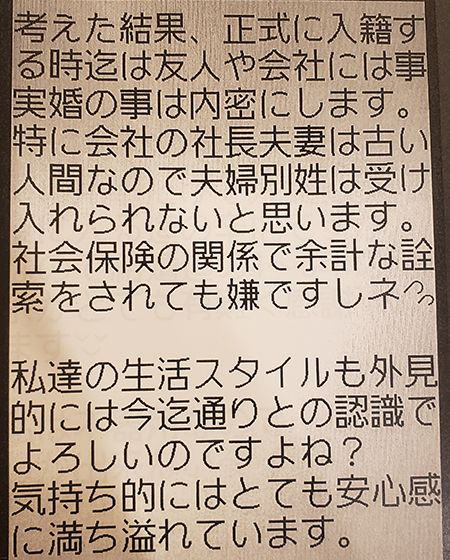 考えた結果、正式に入籍す
る時迄は友人や会社には事
実婚の事は内密にします。
特に会社の社長夫妻は古い
人間なので夫婦別姓は受け
入れられないと思います。
社会保険の関係で余計な詮
索をされても嫌ですしネ
私達の生活スタイルも外見
的には今迄通りとの認識で
よろしいのですよね？
気持ち的にはとても安心感
に満ち溢れています。